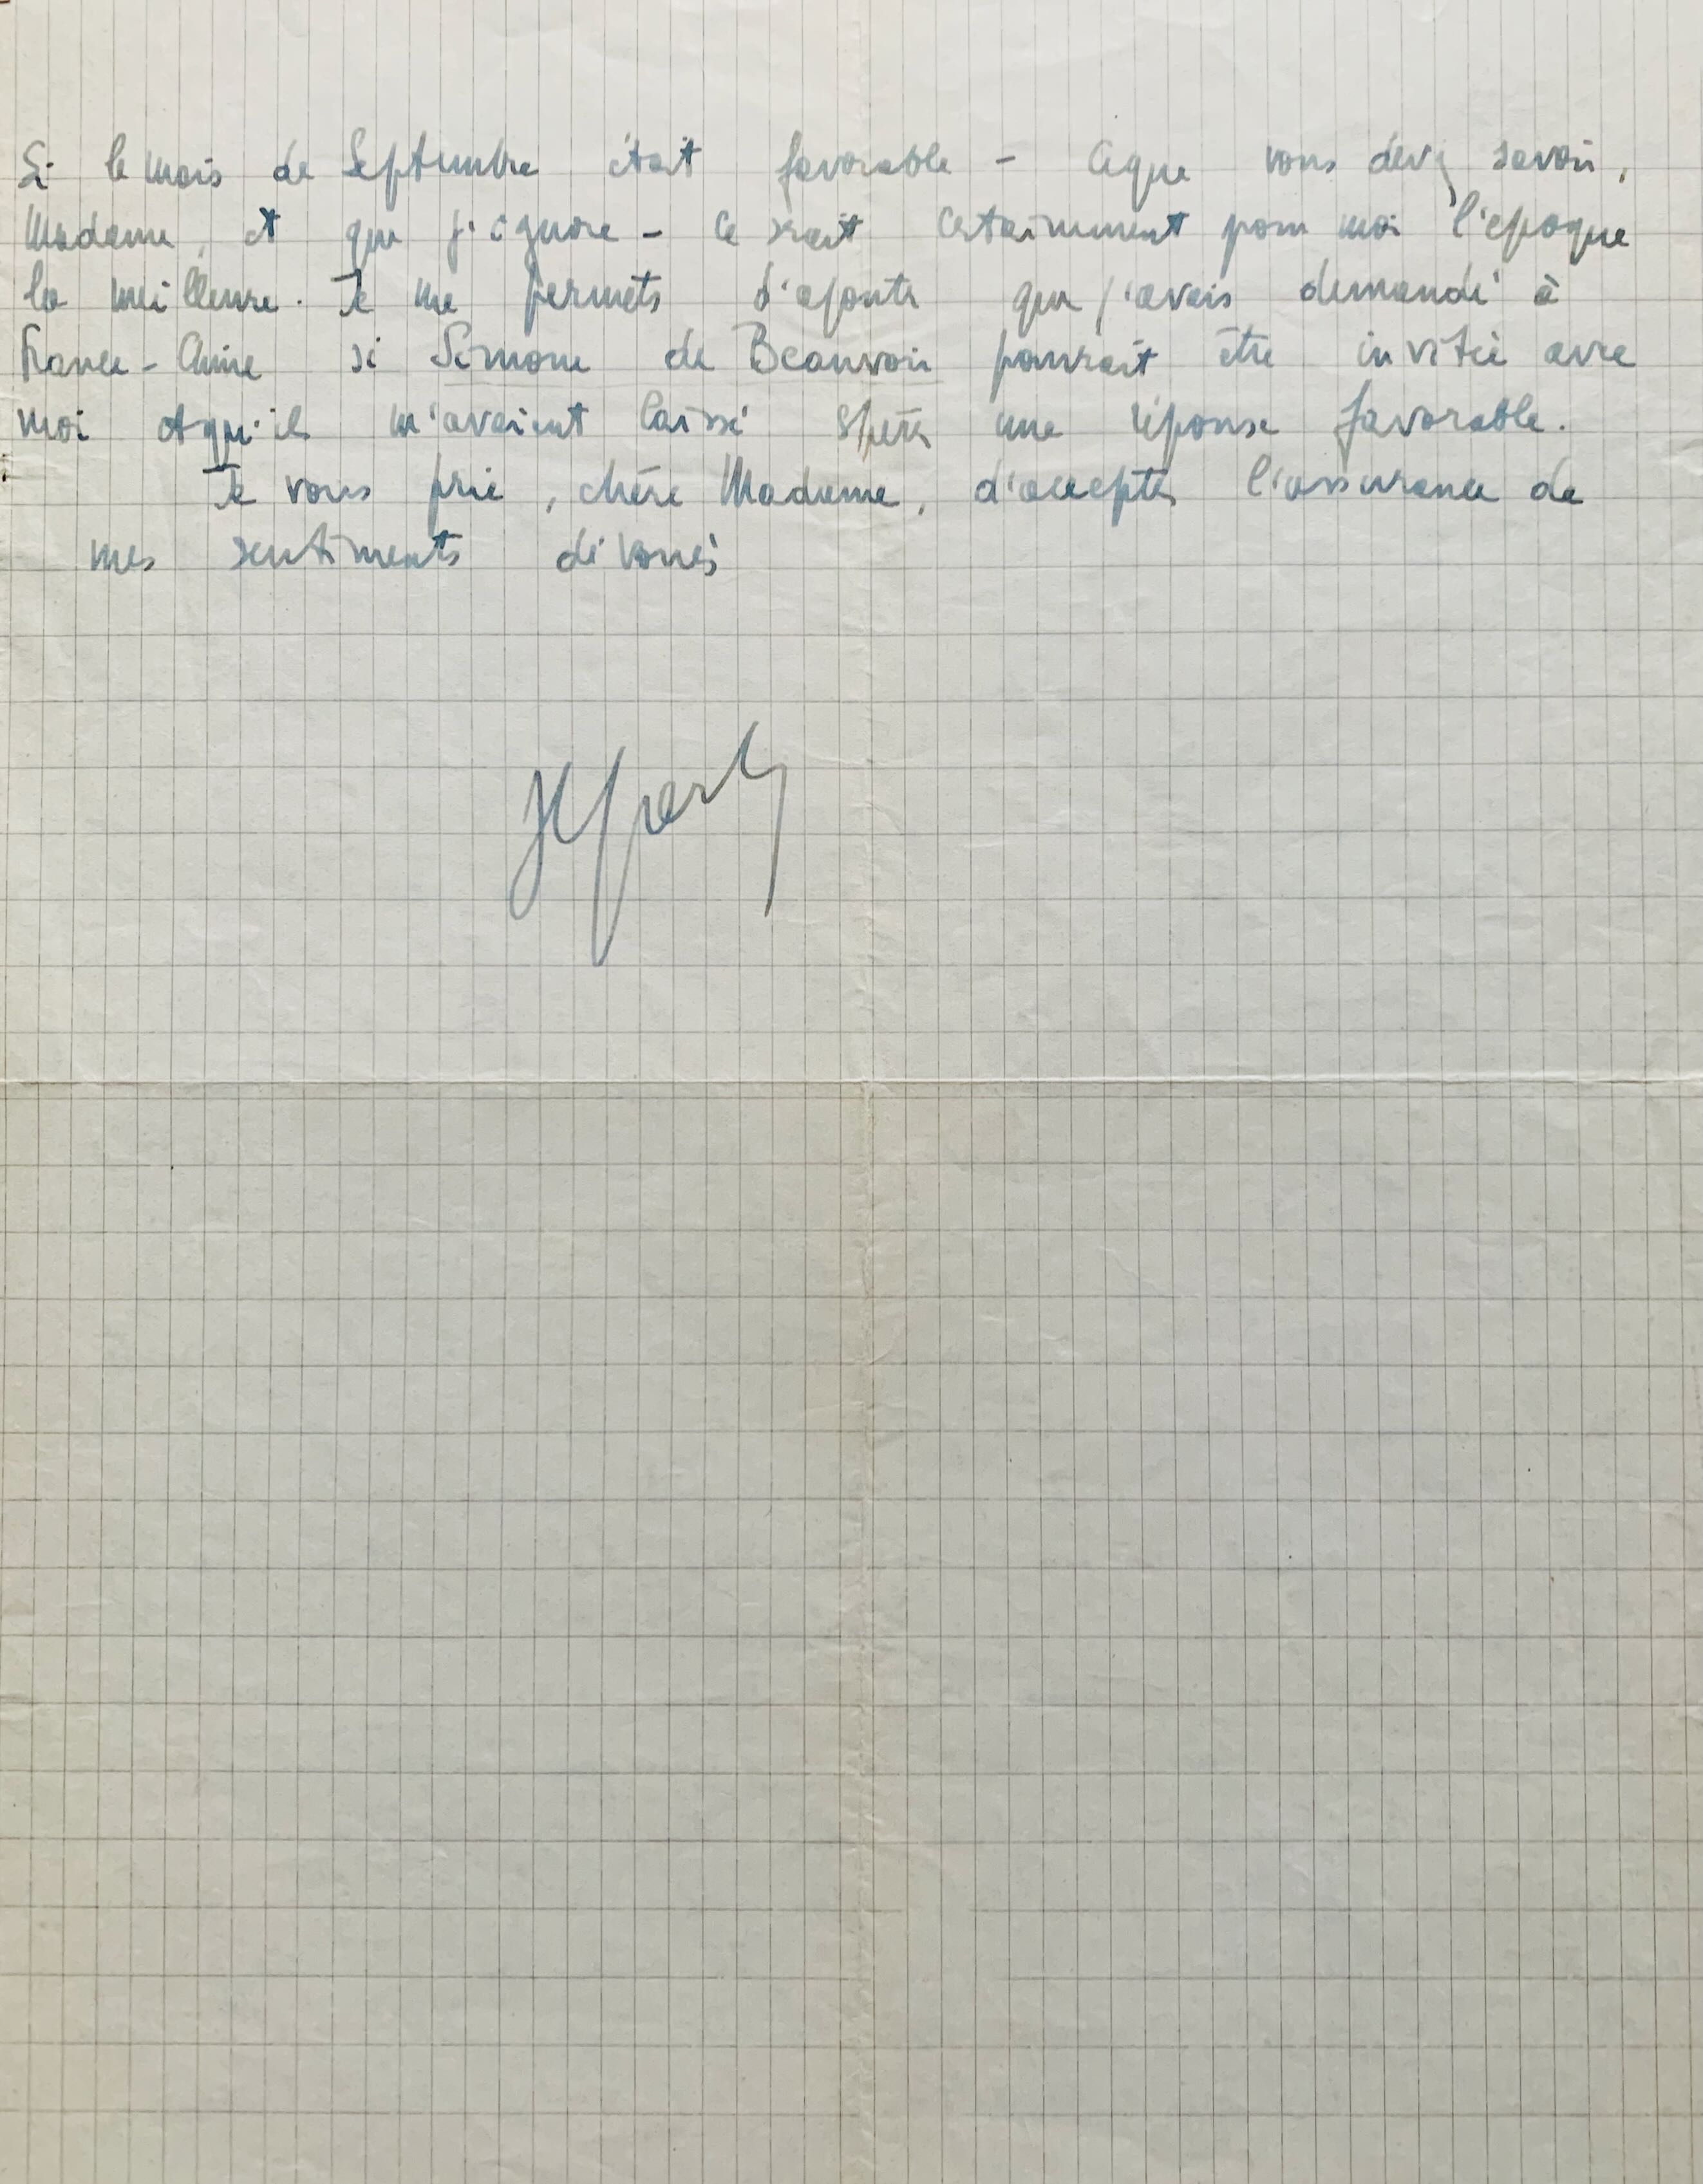 Si le mois de Septembre était favorable - ce que vous devez savoir,
Madame, et que j'ignore - ce serait certainement pour moi l'époque
la meilleure. Je me permets d'ajouter que j'avais demandé à
France-Chine si Simone de Beauvoir pourrait être invitée avec
moi et qu'ils m'avaient laissé espérer une réponse favorable.
Je vous prie, chère Madame, d'accepter l'assurance de
mes sentiments dévoués
JPSartre